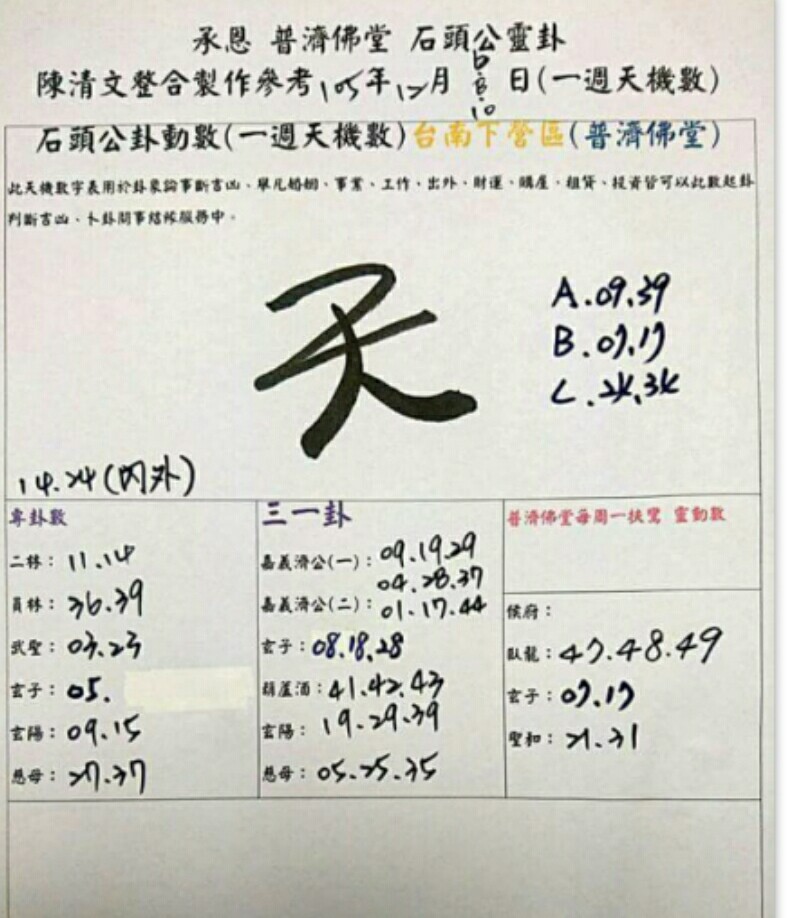 承恩 普濟佛堂 石頭公靈卦
陳清文整合製作參考105年12月6.8.10日(一週天機數)
石頭公卦動數(一週天機數)台南下營區(普濟佛堂)
此天機數字表用於卦象論事斷吉凶、舉凡婚姻、事業、工作、出外、財運、購產、租賃、投資皆可以此數起卦
判斷吉凶、卜卦問事結緣服務中。
天
A.09.39
B.07.17
C.24.34
14.24(內外)
專卦數
二林:11.14
員林:36.39
武聖:03.23
玄子:05.
玄陽:09.15
慈母:27.37
三一卦
嘉義濟公(一):09.19.29
04.28.37
嘉義濟公(二):01.17.44
玄子:08.18.28
葫蘆酒:41.42.43
玄陽:19.29.39
慈母:05.25.35
普濟佛堂每周一扶鸞 靈動數
侯府:
臥龍:47.48.49
玄子:07.17
聖和:21.31